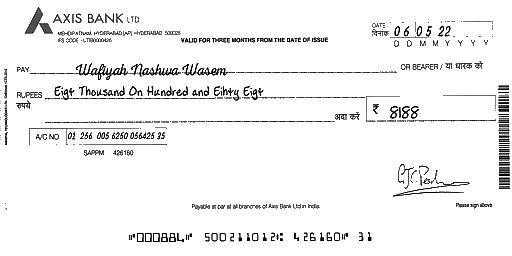 AXIS BANK LTD
MEHDIPATNAM, HYDERABAD [AP] - HYDERABAD 500028
IFS CODE - UTIB0000426
VALID FOR THREE MONTHS FROM THE DATE OF ISSUE
DATE
दिनांक 06 05 22
D D M M Y Y Y Y
PAY Wafiyah Nashwa Wasem OR BEARER / या धारक को
RUPEES Eigt Thousand On Hundred and Eihty Eigt
रुपये अदा करें ₹ 8188
A/C NO 02 256 005 6250 056425 35
SAPPM 426160
Payable at par at all branches of Axis Bank Ltd in India.
Please sign above
⑈00088L⑈ 500211012⑆ 426160⑈ 31